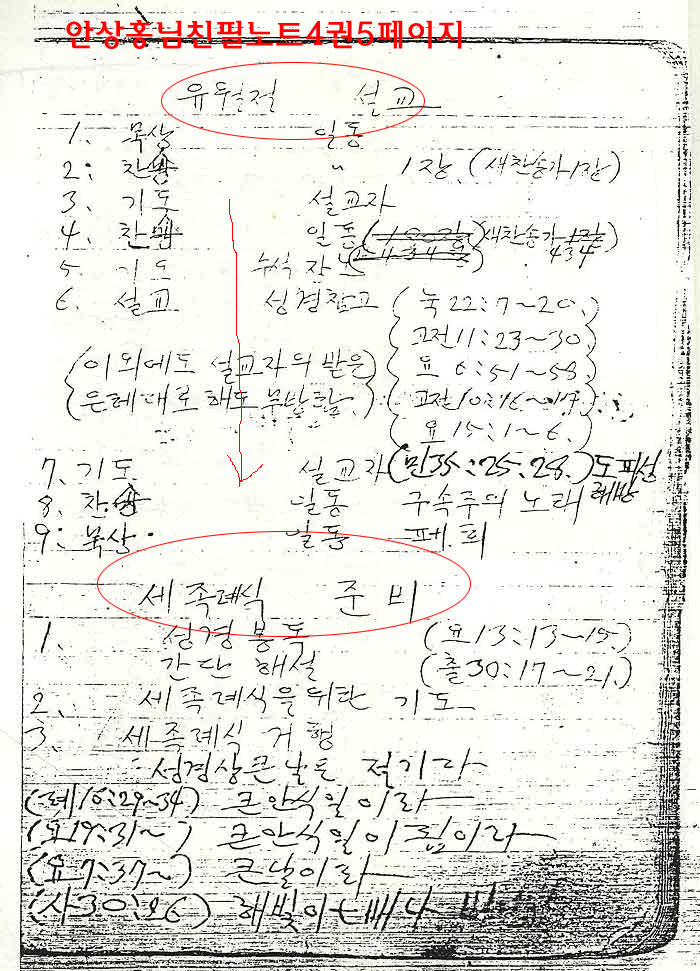 안상홍님친필노트4권5페이지
유월절 설교
1、 묵상 일동
2: 찬송 〃 1장 (새찬송가1장)
3、 기도 설교자
4、 찬송 일동 새찬송가 434
5、 기도
6、 설교 성경참고 (눅22:7~20.)
(고전11:23~30.)
(이외에도 설교자의 받은 (요 6:51~58.)
은혜대로 해도 무방함.) (고전10:16~17.)
(요 15:1~6.)
7、기도 설교자 (민35:25.28.) 도피성
8、찬송 일동 구속주의 노래 해방
9: 묵상. 일동 폐.회
세족례식 준비
1、 성경봉독 (요13:13~15.)
간단 해설 (출30:17~21.)
2、 세족례식을 위한 기도
3、 세족례식 거행
성경상큰날은 절기라
(레16:29~34) 큰안식일이라
(요19:31~) 큰안식일이 됨이라
(요7:37~) 큰날이라
(사30:26)